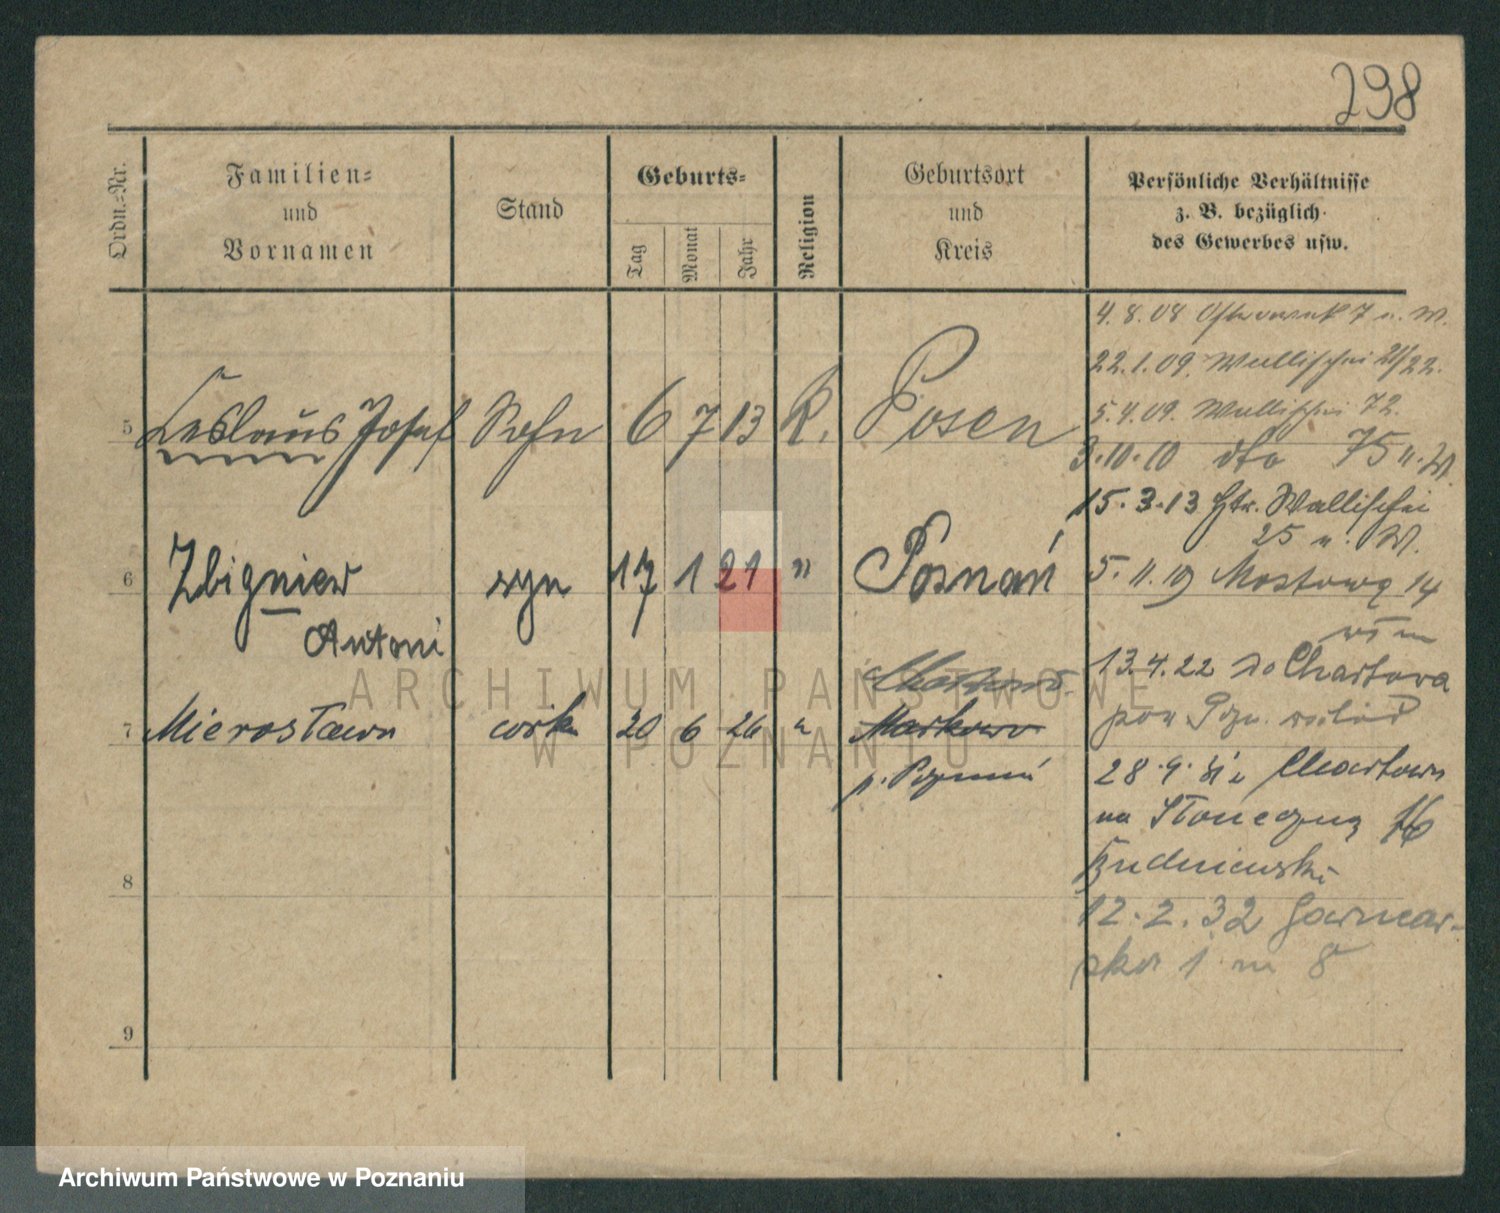 298
Ordn.-Nr.
Familien-
und
Vornamen
Stand
Geburts-
Tag
Monat
Jahr
Religion
Geburtsort
und
Kreis
Persönliche Verhältnisse
z. B. bezüglich
des Gewerbes usw.
4. 8. 08 7 u. W.
22. 1. 09. Wallischei 21/22.
5. 4. 09. Wallischei 72.
5 Leslaus Josef Sohn 6 7 13 R. Posen
3. 10. 10 dto 75 u. W.
15. 3. 13 Htr. Wallischei
25 u. W.
6 Zbigniew syn 17 1 21 " Poznań
Antoni
5. 11. 19 Mostowa 14
13. 4. 22 do Chartowa
pow Pozn.
7 Mirosława córka 20 6 26 "
p. Poznań
28. 9. z Chartowa
na Słoneczną 16
12. 2. 32 Garncar-
ska 1 m 8
8
9
ARCHIWUM PAŃSTWOWE
W POZNANIU
Archiwum Państwowe w Poznaniu